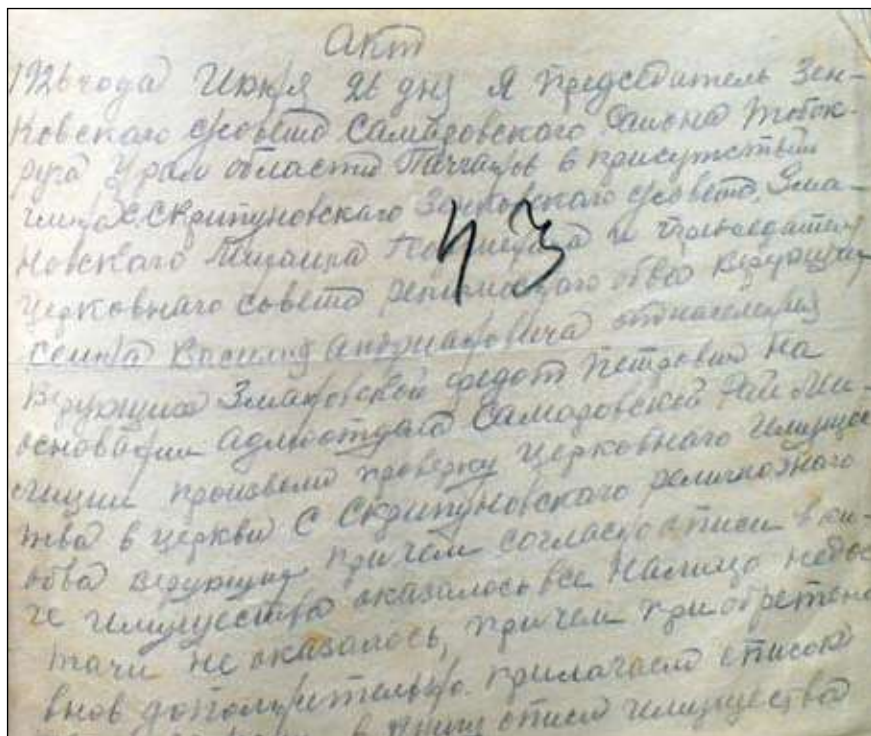 Акт
1926 года Июня 26 дня Я председатель Зен-
ковского с/совета Самаровского района Тобок-
руга Урал области в присутствии
члена с. Скрипуновскаго Зенковскаго с/совета
новскаго Михаила и председателя
церковнаго совета религиознаго обва верующих
Василия Андриановича от населения
верующих Змановской Федот Петрович на
основании адмотдела Самаровской Рай Ми-
лиции произвели проверку церковнаго имущес
тва в церкви С Скрипуновскаго религиозного
обва верующих причем согласно описи в кни-
ге имущества оказалось все налицо недос
тачи не оказалось, причем приобретено
внов дополнительно прилагаем список
в книги описи имущества
43